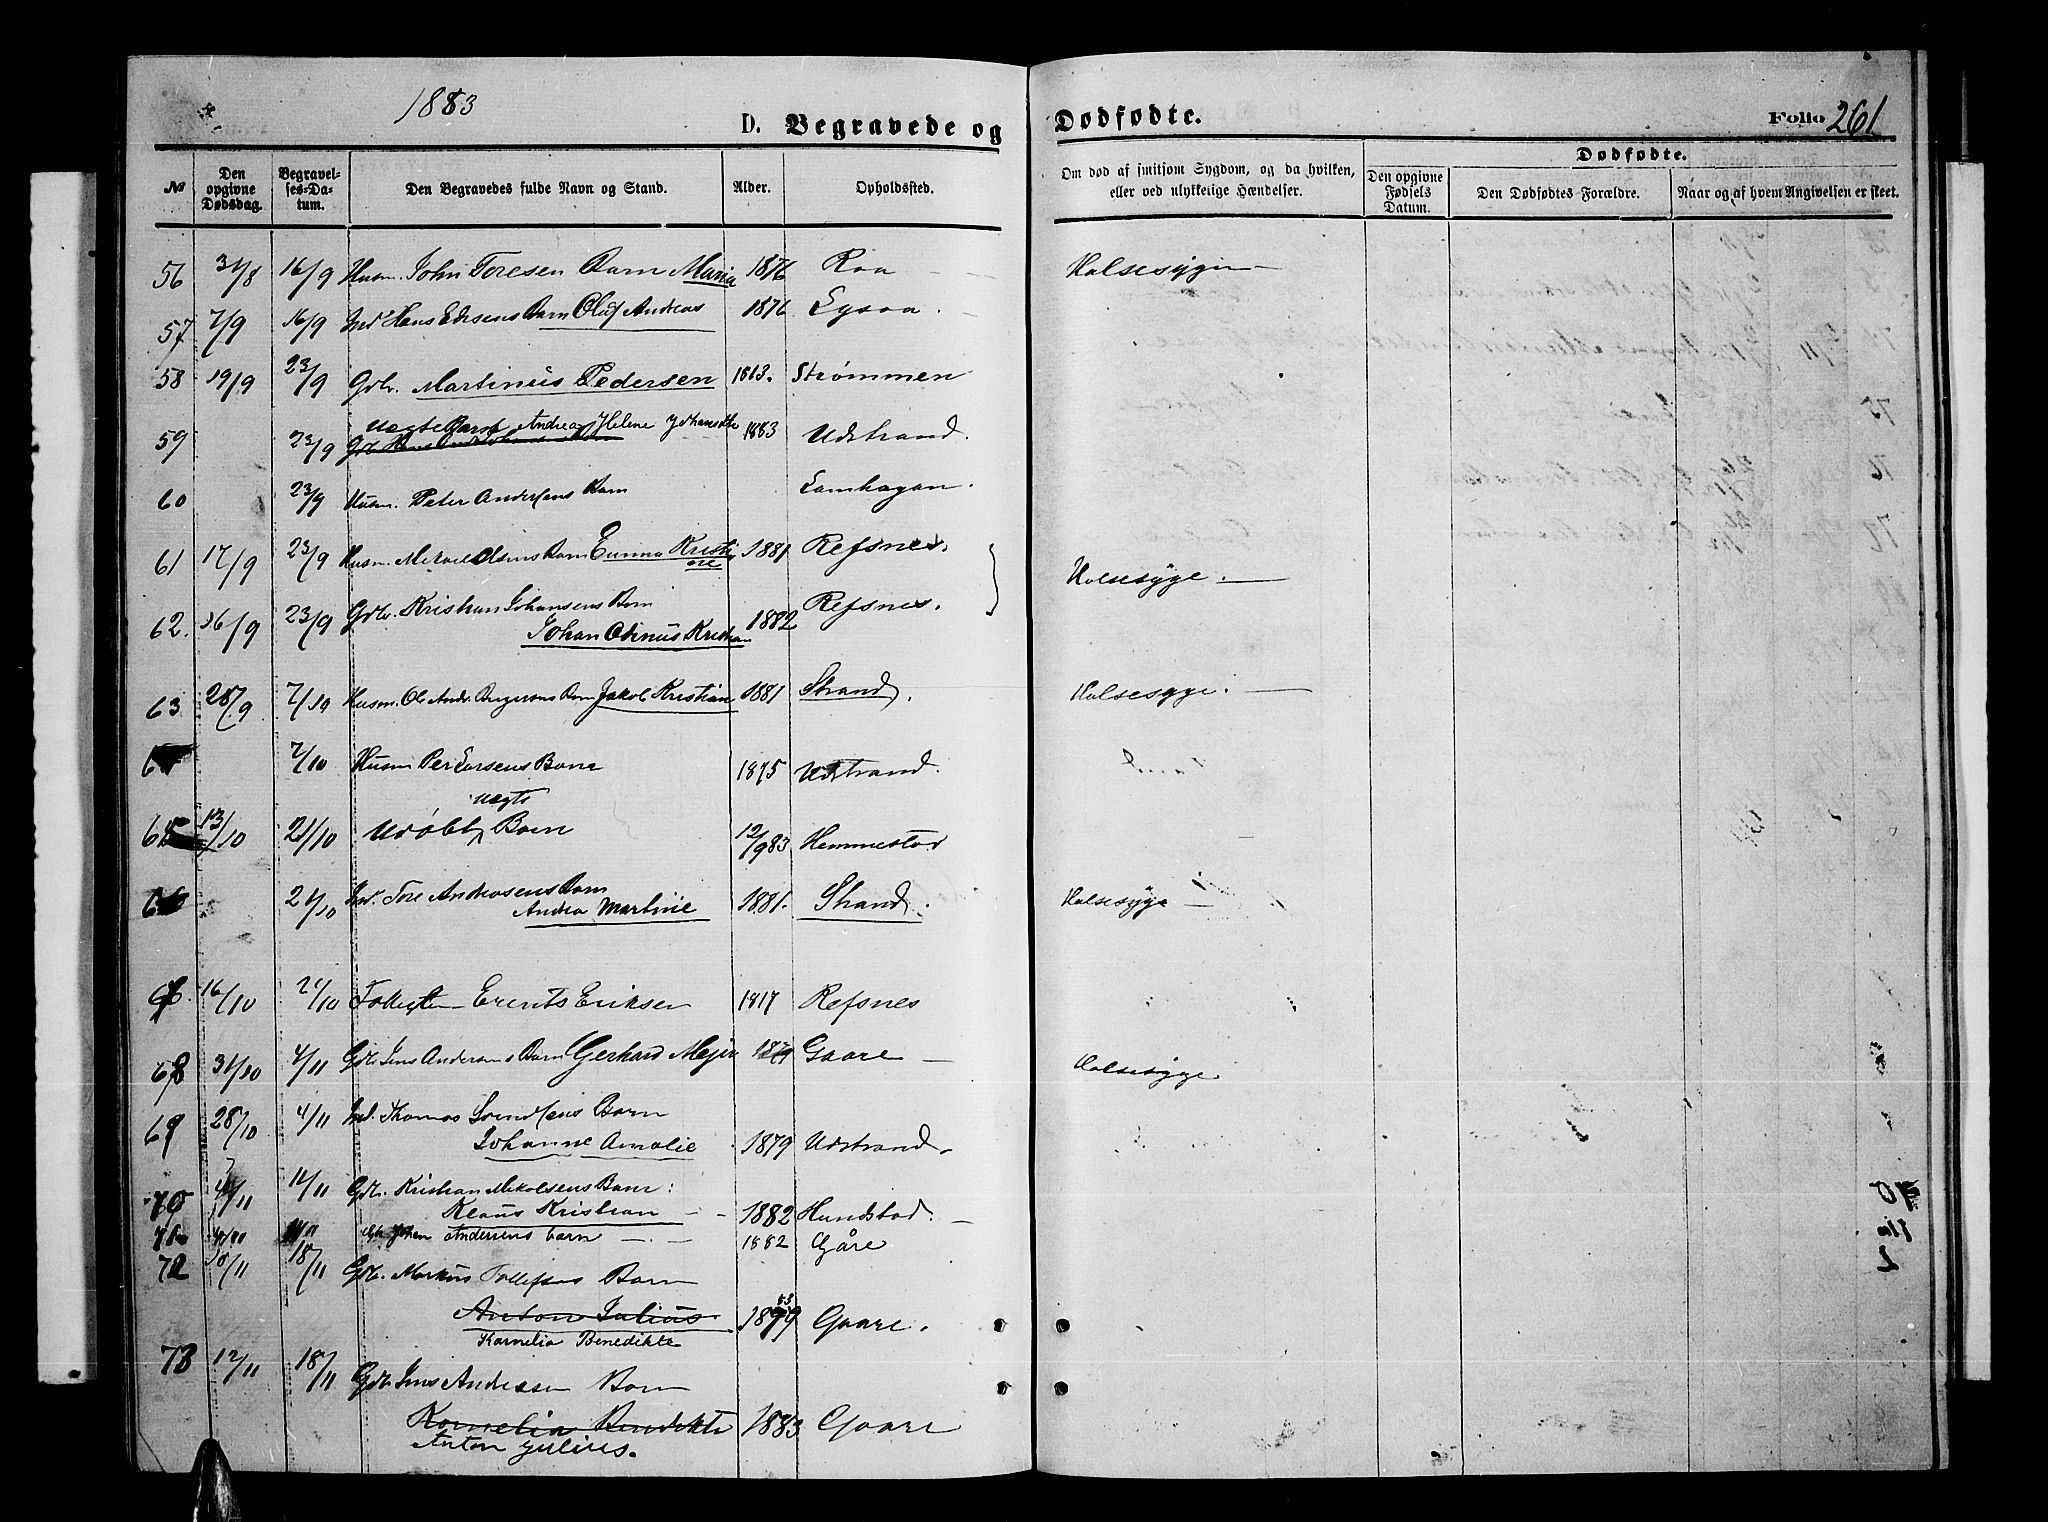 1883
D. Begravede og Dødfødte. Folio 261
№
Den opgivne Dødsdag.
Begravelses-Datum.
Den Begravedes fulde Navn og Stand.
Alder.
Opholdssted.
Om død af smitsom Sygdom, og da hvilken, eller ved ulykkelige Hændelser.
Dødfødte.
Den opgivne Fødsels Datum.
Den Dødfødtes Forældre.
Naar og af hvem Angivelsen er skeet.
56 31/8 16/9 Husm. John Toresen Barn Maria 1876 Roa Halsesyge
57 7/9 16/9 Ind. Hans Barn Oluf Andreas 1876 Lysøa
58 19/9 23/9 Gdbr. Martinus Pedersen 1813. Strømmen
59 23/9 Uægte Barn Andrea Helene 1883 Udstrand.
60 23/9 Husm. Peter Andersens Barn Lamhagan.
61 17/9 23/9 Husm. Mikael Olsens Barn Emma Kristine 1881 Refsnes. Halsesyge.
62. 16/9 23/9 Gdbr. Kristian Johansens Barn Refsnes.
Johan Odinus Kristian 1882
63 28/9 7/10 Husm. Ole Andr. Barn Jakob Kristian 1881 Strand. Halsesyge.
64 7/10 Husm Per Larsens Barn 1875 Udstrand.
65 13/10 21/10 Udøbt uægte Barn 12/9 83 Hemmestad
66 21/10 Ind. Tore Andreasens Barn
Andrea Martine 1881. Strand. Halsesyge
67 16/10 21/10 Erents Eriksen 1817 Refsnes
68 31/10 4/11 Gdb. Jens Andersens Barn Gerhard Mejer 1879 Gaare Halsesyge
69 28/10 4/11 Ind. Thomas Barn
Johanne Amalie 1879 Udstrand.
70 4/11 11/11 Gdb. Kristian Mikalsens Barn:
Klaus Kristian 1882 Hundstad.
71 11/11 Gbr Johan Andersens barn 1882 Gåre
72 10/11 18/11 Gdb. Markus Tollefsens Barn
Anton Julius 1879 83 Gaare.
Kornelia Benedikte
73 12/11 18/11 Gdb. Jens Andersen Barn
Kornelia Benedikte 1883 Gaare
Anton Julius.